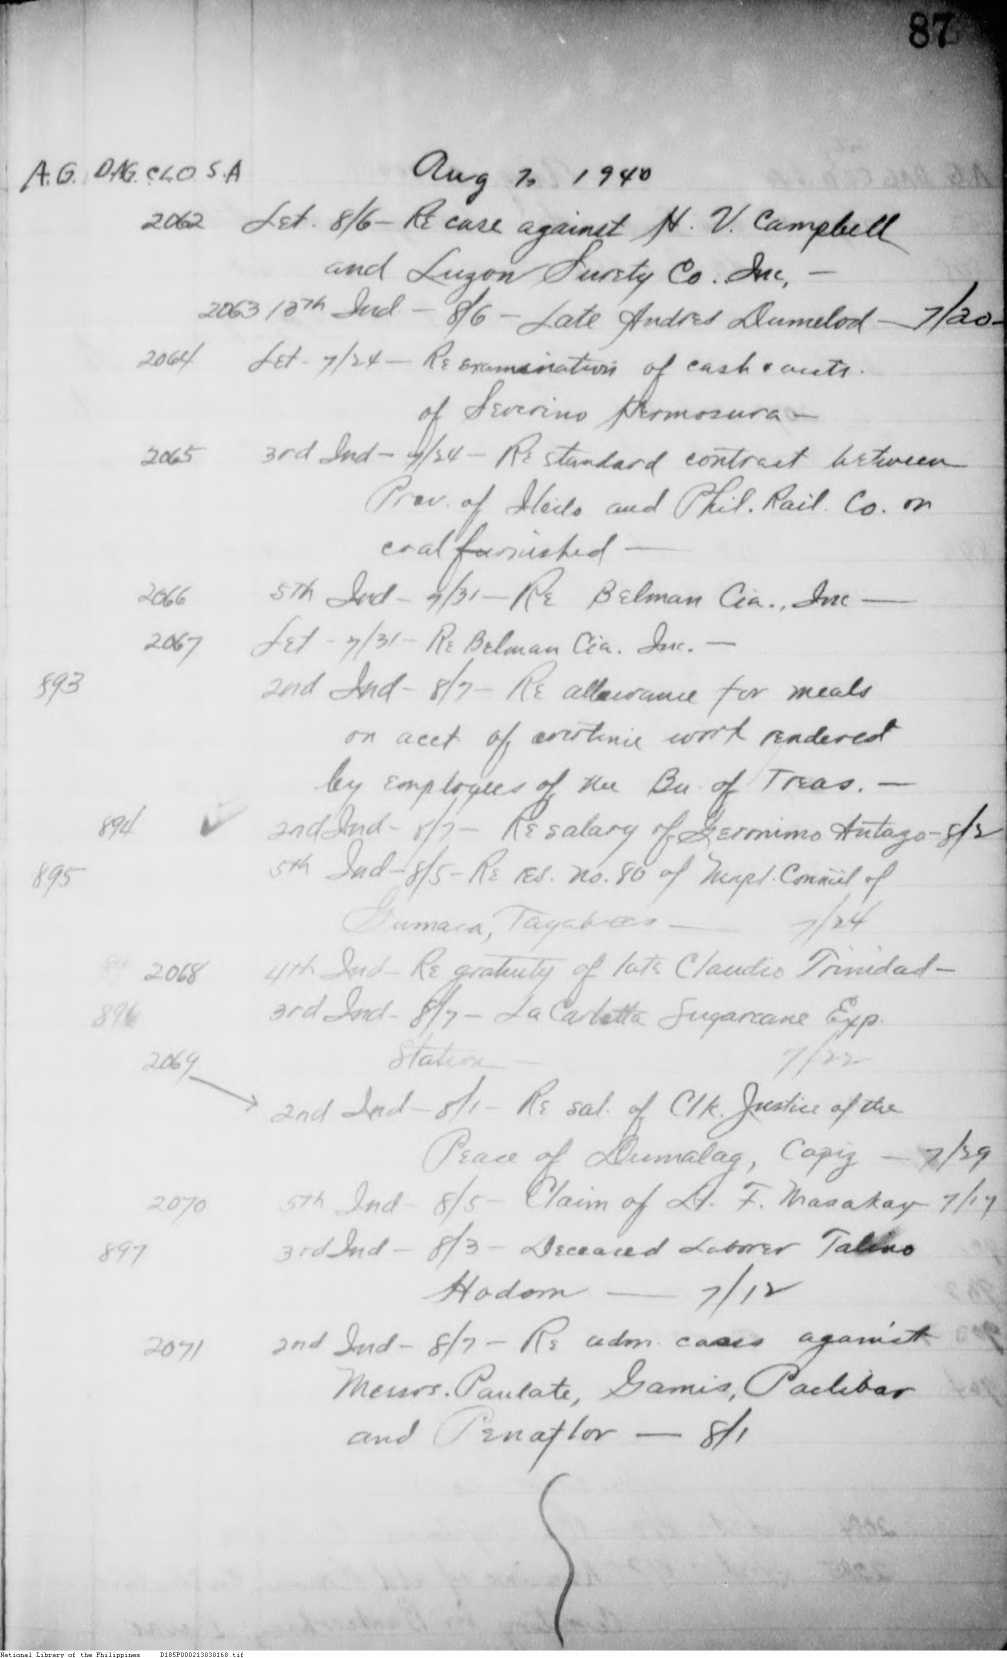 87
A.G. D.A.G. CLO S.A
Aug 7, 1940
2062 Let. 8/6 - Re case against H. V. Campbell
and Luzon Surety Co. Inc, -
2063 13th Ind - 8/6 - Late Andres Dumelod - 7/20 -
2064 Let - 7/24 - Re examination of cash & accts.
of Severino Hermosura -
2065 3rd Ind - 7/24 - Re standard contract between
Prov. of Iloilo and Phil. Rail. Co. on
coal furnished -
2066 5th Ind - 7/31 - Re Belman Cia., Inc -
2067 Let - 7/31 - Re Belman Cia. Inc. -
893 2nd Ind - 8/7 - Re allowance for meals
on acct of overtime work rendered
by employees of the Bu. of Treas. -
894 ✓ 2nd Ind - 8/7 - Re salary of Geronimo Antago - 8/2
895 5th Ind - 8/5 - Re res. no. 80 of Mcpl. Council of
Gumaca, Tayabas - 7/24
2068 4th Ind - Re gratuity of late Claudio Trinidad -
896 3rd Ind - 8/7 - La Carlotta Sugarcane Exp.
Station - 7/22
2069
2nd Ind - 8/1 - Re sal. of Clk. Justice of the
Peace of Dumalag, Capiz - 7/29
2070 5th Ind - 8/5 - Claim of Lt. F. Masakay 7/17
897 3rd Ind - 8/3 - Deceased Laborer Talino
Hadom - 7/12
2071 2nd Ind - 8/7 - Re adm. cases against
Messrs. Paulate, Gamis, Paclibar
and Penaflor - 8/1
National Library of the Philippines D185P000213830168.tif